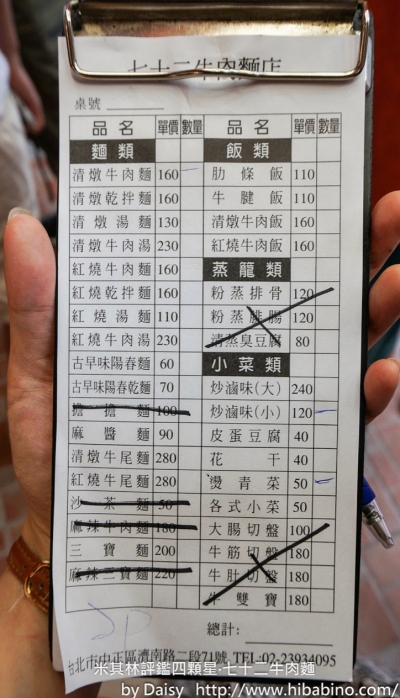 七十二牛肉麵店
桌號
品名 單價 數量
麵類
清燉牛肉麵 160
清燉乾拌麵 160
清燉湯麵 130
清燉牛肉湯 230
紅燒牛肉麵 160
紅燒乾拌麵 160
紅燒湯麵 110
紅燒牛肉湯 230
古早味陽春麵 60
古早味陽春乾麵 70
擔擔麵 100
麻醬麵 90
清燉牛尾麵 280
紅燒牛尾麵 280
沙茶麵 50
麻辣牛肉麵 180
三寶麵 200
麻辣三寶麵 220
品名 單價 數量
飯類
肋條飯 110
牛腱飯 110
清燉牛肉飯 160
紅燒牛肉飯 160
蒸籠類
粉蒸排骨 120
粉蒸肥腸 120
清蒸臭豆腐 80
小菜類
炒滷味(大) 240
炒滷味(小) 120
皮蛋豆腐 40
花干 40
燙青菜 50
各式小菜 50
大腸切盤 100
牛筋切盤 180
牛肚切盤 180
牛雙寶 180
總計:
台北市中正區濟南路二段71號 TEL:02-23934095
米其林評鑑四顆星-七十二牛肉麵
by Daisy http://www.hibabino.com